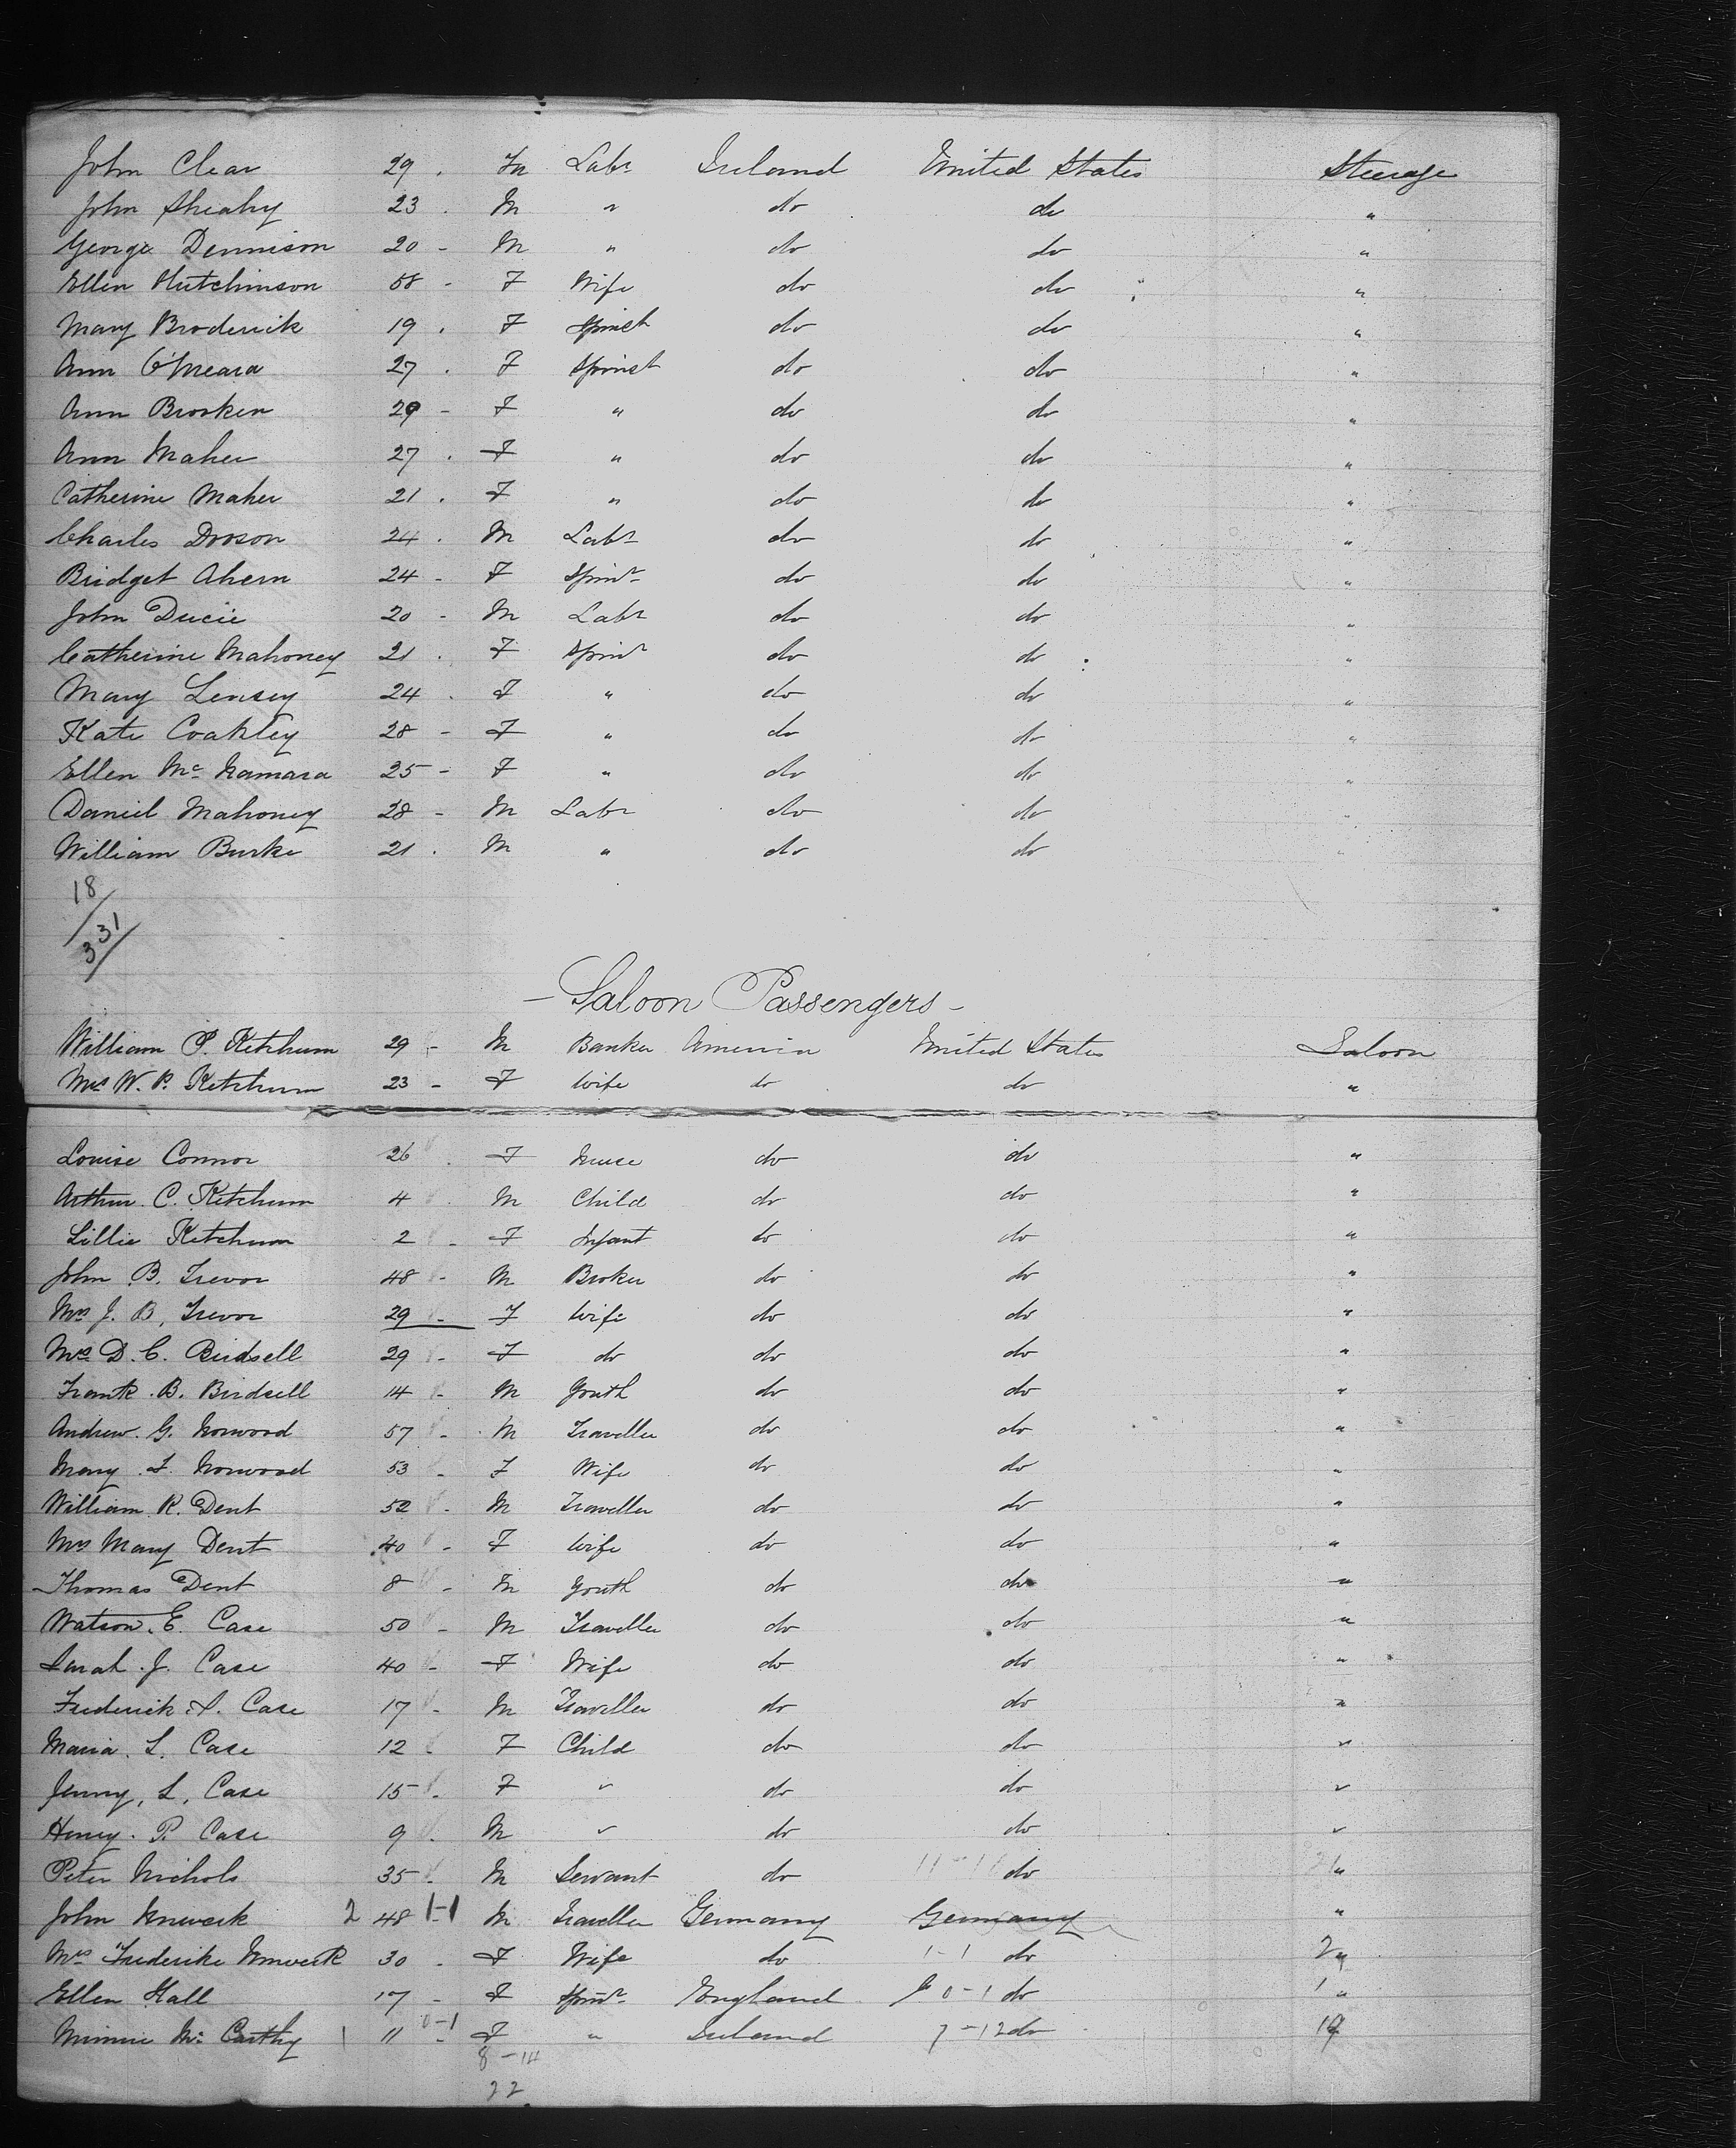 John Clear 29 . M Labr Ireland United States Steerage
John Sheahy 23 . M " do do "
George Dennison 20 - M " do do "
Ellen Hutchinson 58 - F Wife do do "
Mary Broderick 19 . F Spinst do do "
Ann O'Meara 27 . F Spinst do do "
Ann Brosken 29 - F " do do "
Ann Maher 27 . F " do do "
Catherine Maher 21 . F " do do "
Charles Droson 24 . M Labr do do "
Bridget Ahern 24 - F Spinr do do "
John Ducie 20 - M Labr do do "
Catherine Mahoney 21 . F Spinr do do "
Mary Lensey 24 . F " do do "
Kate Coakley 28 - F " do do "
Ellen Mc Namara 25 - F " do do "
Daniel Mahoney 28 - M Labr do do "
William Burke 21 . M " do do "
18/
331/
- Saloon Passengers -
William P. Ketchum 29 - M Banker America United States Saloon
Mrs W. P. Ketchum 23 - F Wife do do "
Louise Connor 26 . F Nurse do do "
Arthur C. Ketchum 4 . M Child do do "
Lillie Ketchum 2 - F Infant do do "
John B. Trevor 48 - M Broker do do "
Mrs J. B. Trevor 29 - F Wife do do "
Mrs D. C. Birdsell 29 - F do do do "
Frank B. Birdsell 14 - M Youth do do "
Andrew G. Norwood 57 - M Traveller do do "
Mary F. Norwood 53 - F Wife do do "
William R. Dent 52 - M Traveller do do "
Mrs Mary Dent 40 - F Wife do do "
Thomas Dent 8 - M Youth do do "
Watson E. Case 50 - M Traveller do do "
Sarah J. Case 40 - F Wife do do "
Frederick S. Case 17 - M Traveller do do "
Maria L. Case 12 - F Child do do "
Jenny L. Case 15 - F " do do "
Henry P. Case 9 . M " do do "
Peter Nichols 35 - M Servant do do "
John 2 48 1-1 M Traveller Germany Germany "
Mrs Frederike 30 - F Wife do 1-1 do 2 "
Ellen Hall 17 - F Spinr England 0-1 do 1 "
Minnie Mc Carthy 1 11 0-1 F " Ireland 7-12 do 19
8-14
22